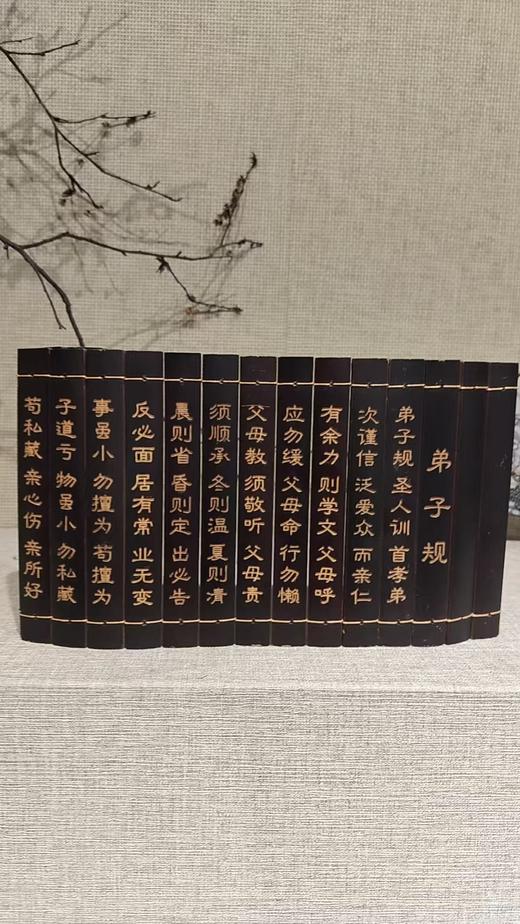 弟子规
弟子规 圣人训 首孝弟
次谨信 泛爱众 而亲仁
有余力 则学文 父母呼
应勿缓 父母命 行勿懒
父母教 须敬听 父母责
须顺承 冬则温 夏则凊
晨则省 昏则定 出必告
反必面 居有常 业无变
事虽小 勿擅为 苟擅为
子道亏 物虽小 勿私藏
苟私藏 亲心伤 亲所好